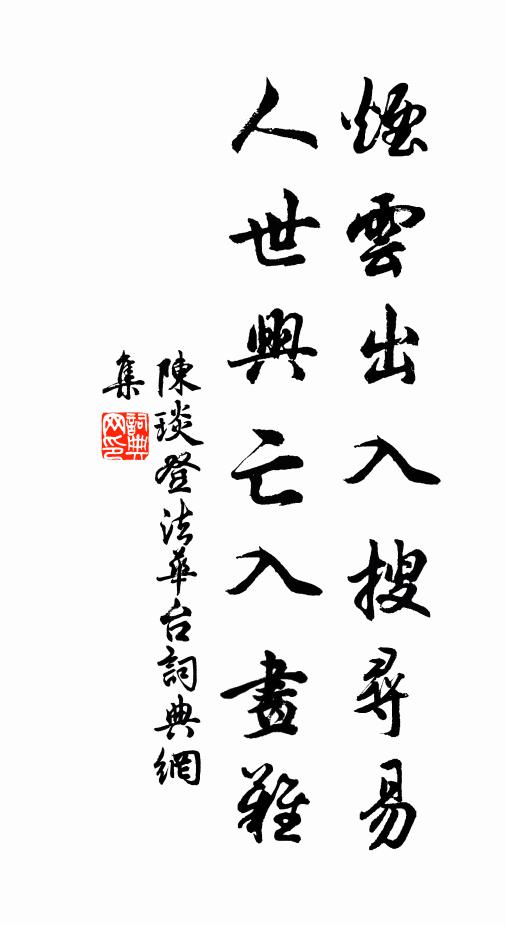 煙雲出入搜尋易
人世興亡入畫難
陳琰登法華台詞典網
集
詞典
网印